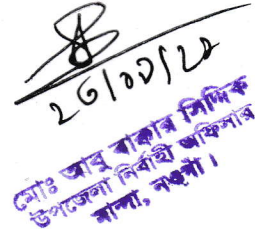 ২৫/০৩/২০
মোঃ আবু বাক্কার সিদ্দিক
উপজেলা নির্বাহী অফিসার
মান্দা, নওগাঁ।